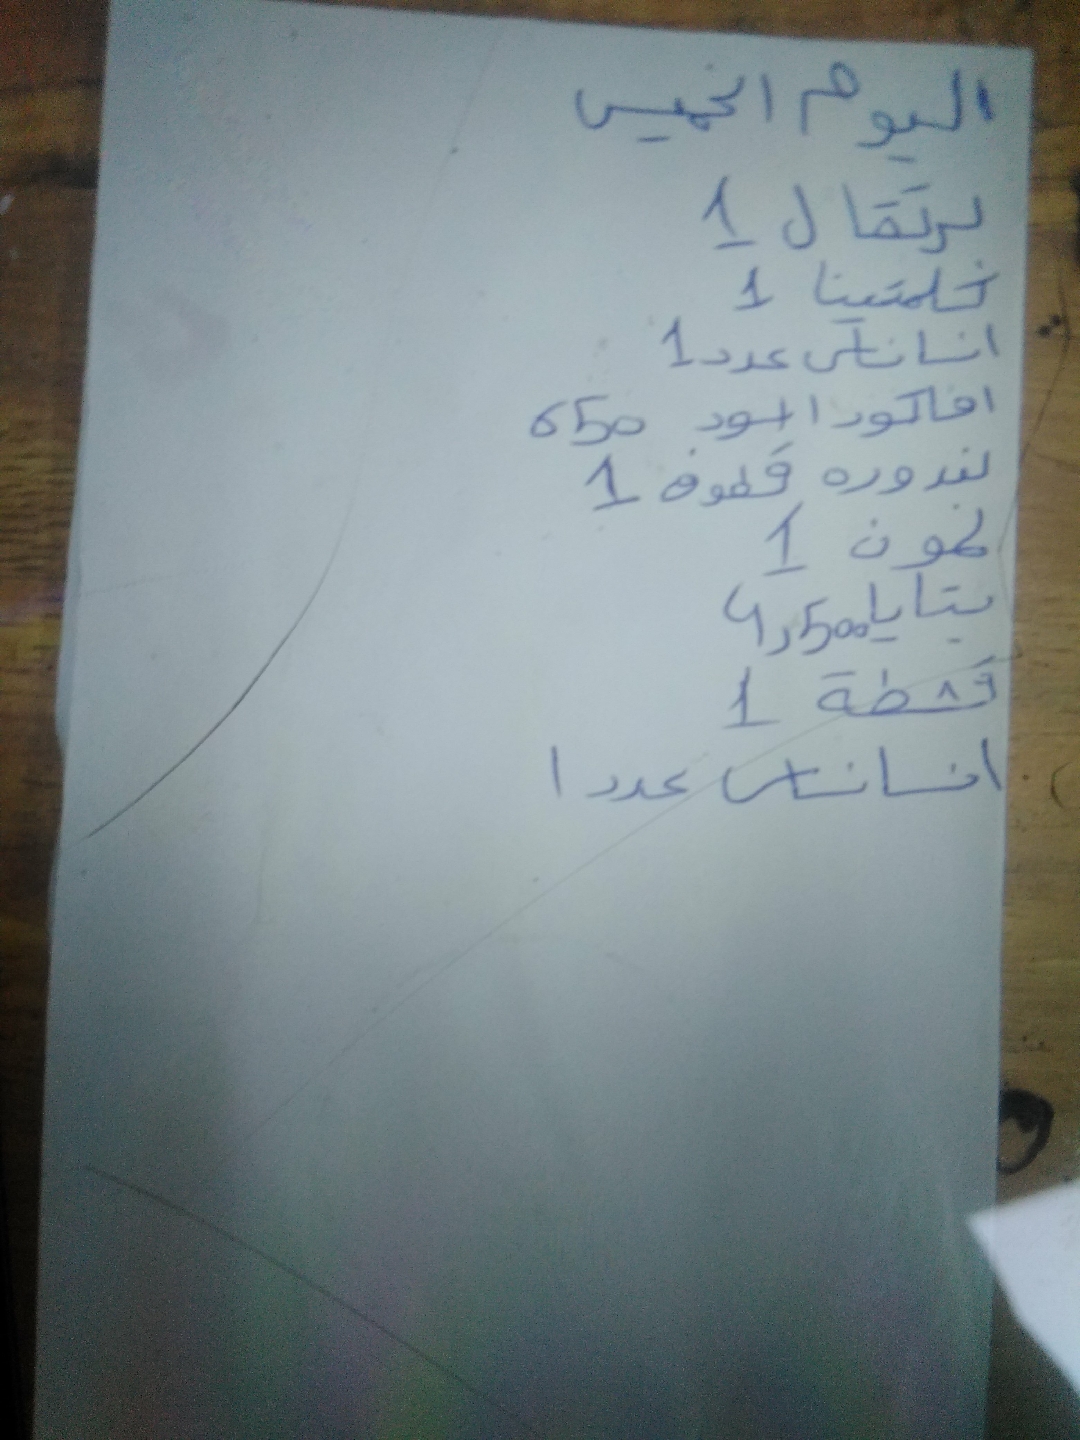 اليوم الخميس
برتقال 1
كلمتينا 1
اناناس عدد 1
افاكودا اسود 650
بندوره قطوف 1
لمون 1
بتايا 4,500
قشطة 1
اناناس عدد 1